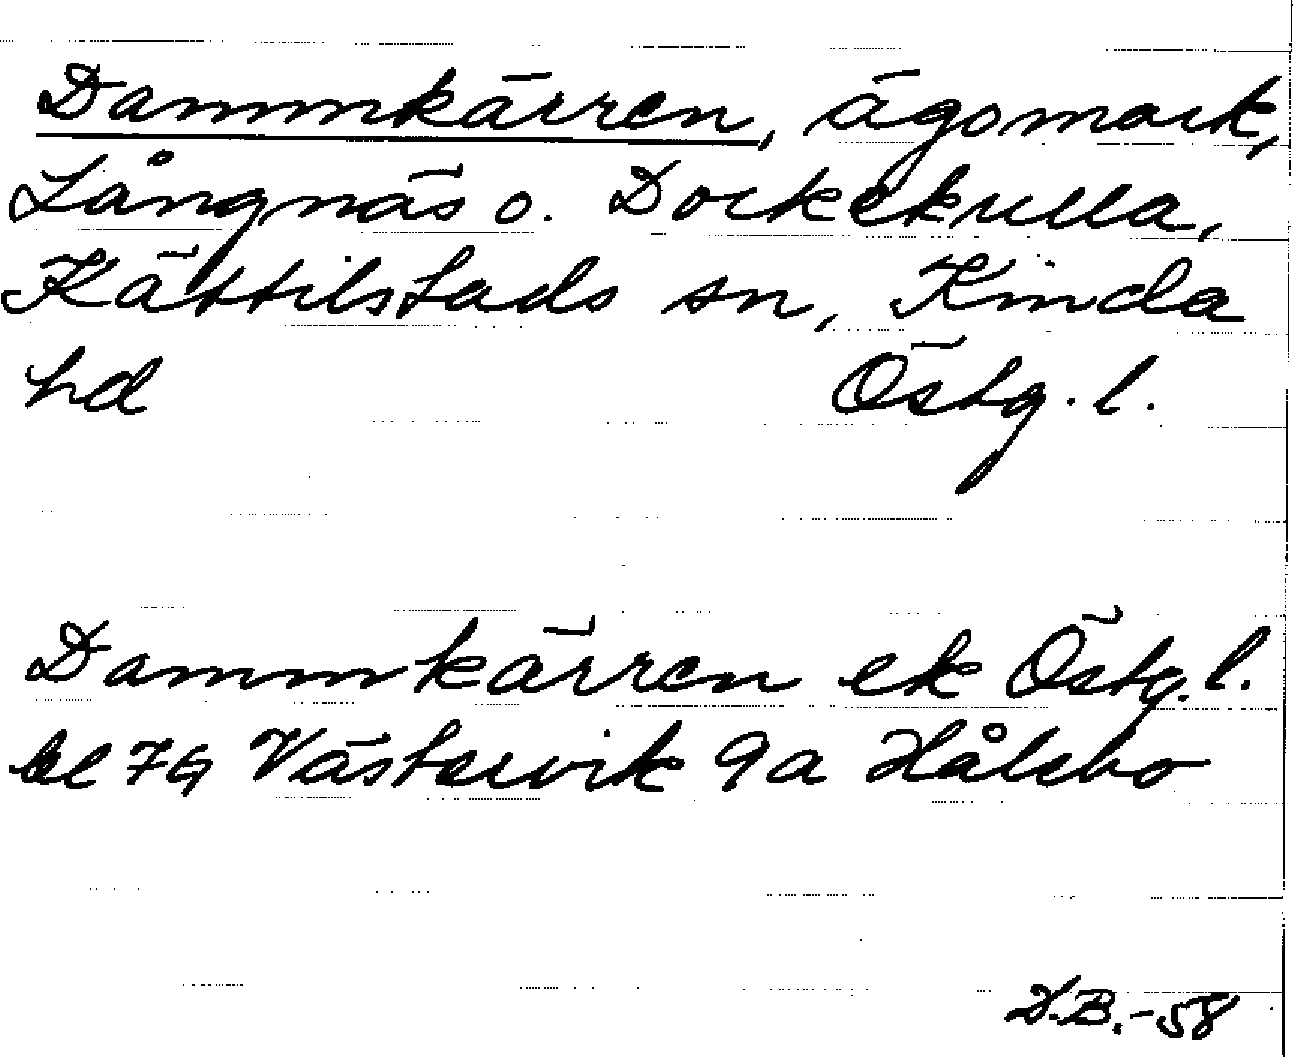 Dammkärren, ägomark,
Långnäs o. Dockekulla,
Kättilstads sn, Kinda
hd Östg. l.
Dammkärren ek Östg. l.
bl 7G Västervik 9a Hålebo
D.B.-58